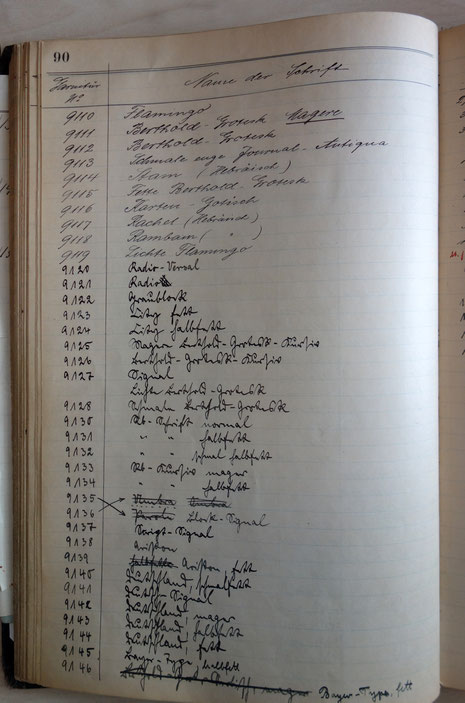 90
Garnitur Nº Name der Schrift
9110 Flamingo
9111 Berthold-Grotesk Magere
9112 Berthold-Grotesk
9113 Schmale enge Journal-Antiqua
9114 Stam (Hebräisch)
9115 Fette Berthold-Grotesk
9116 Karten-Gotisch
9117 Rachel (Hebräisch)
9118 Rambam ( " )
9119 Lichte Flamingo
9120 Radio-Versal
9121 Radio
9122 Graublock
9123 City fett
9124 City halbfett
9125 Mager Berthold-Grotesk-Kursiv
9126 Berthold-Grotesk-Kursiv
9127 Signal
Lichte Berthold-Grotesk
9128 Schmale Berthold-Grotesk
9130 Kb-Schrift normal
9131 " " halbfett
9132 " " schmal halbfett
9133 Kb-Kursiv mager
9134 " " halbfett
9135
9136 Block-Signal
9137 Script-Signal
9138 Ariston
9139 Ariston, fett
9140 Deutschland, schmalfett
9141 Deutsch-Signal
9142 Deutschland, mager
9143 Deutschland, halbfett
9144 Deutschland, fett
9145 Beyer-Type, halbfett
9146 mager Beyer-Type, fett